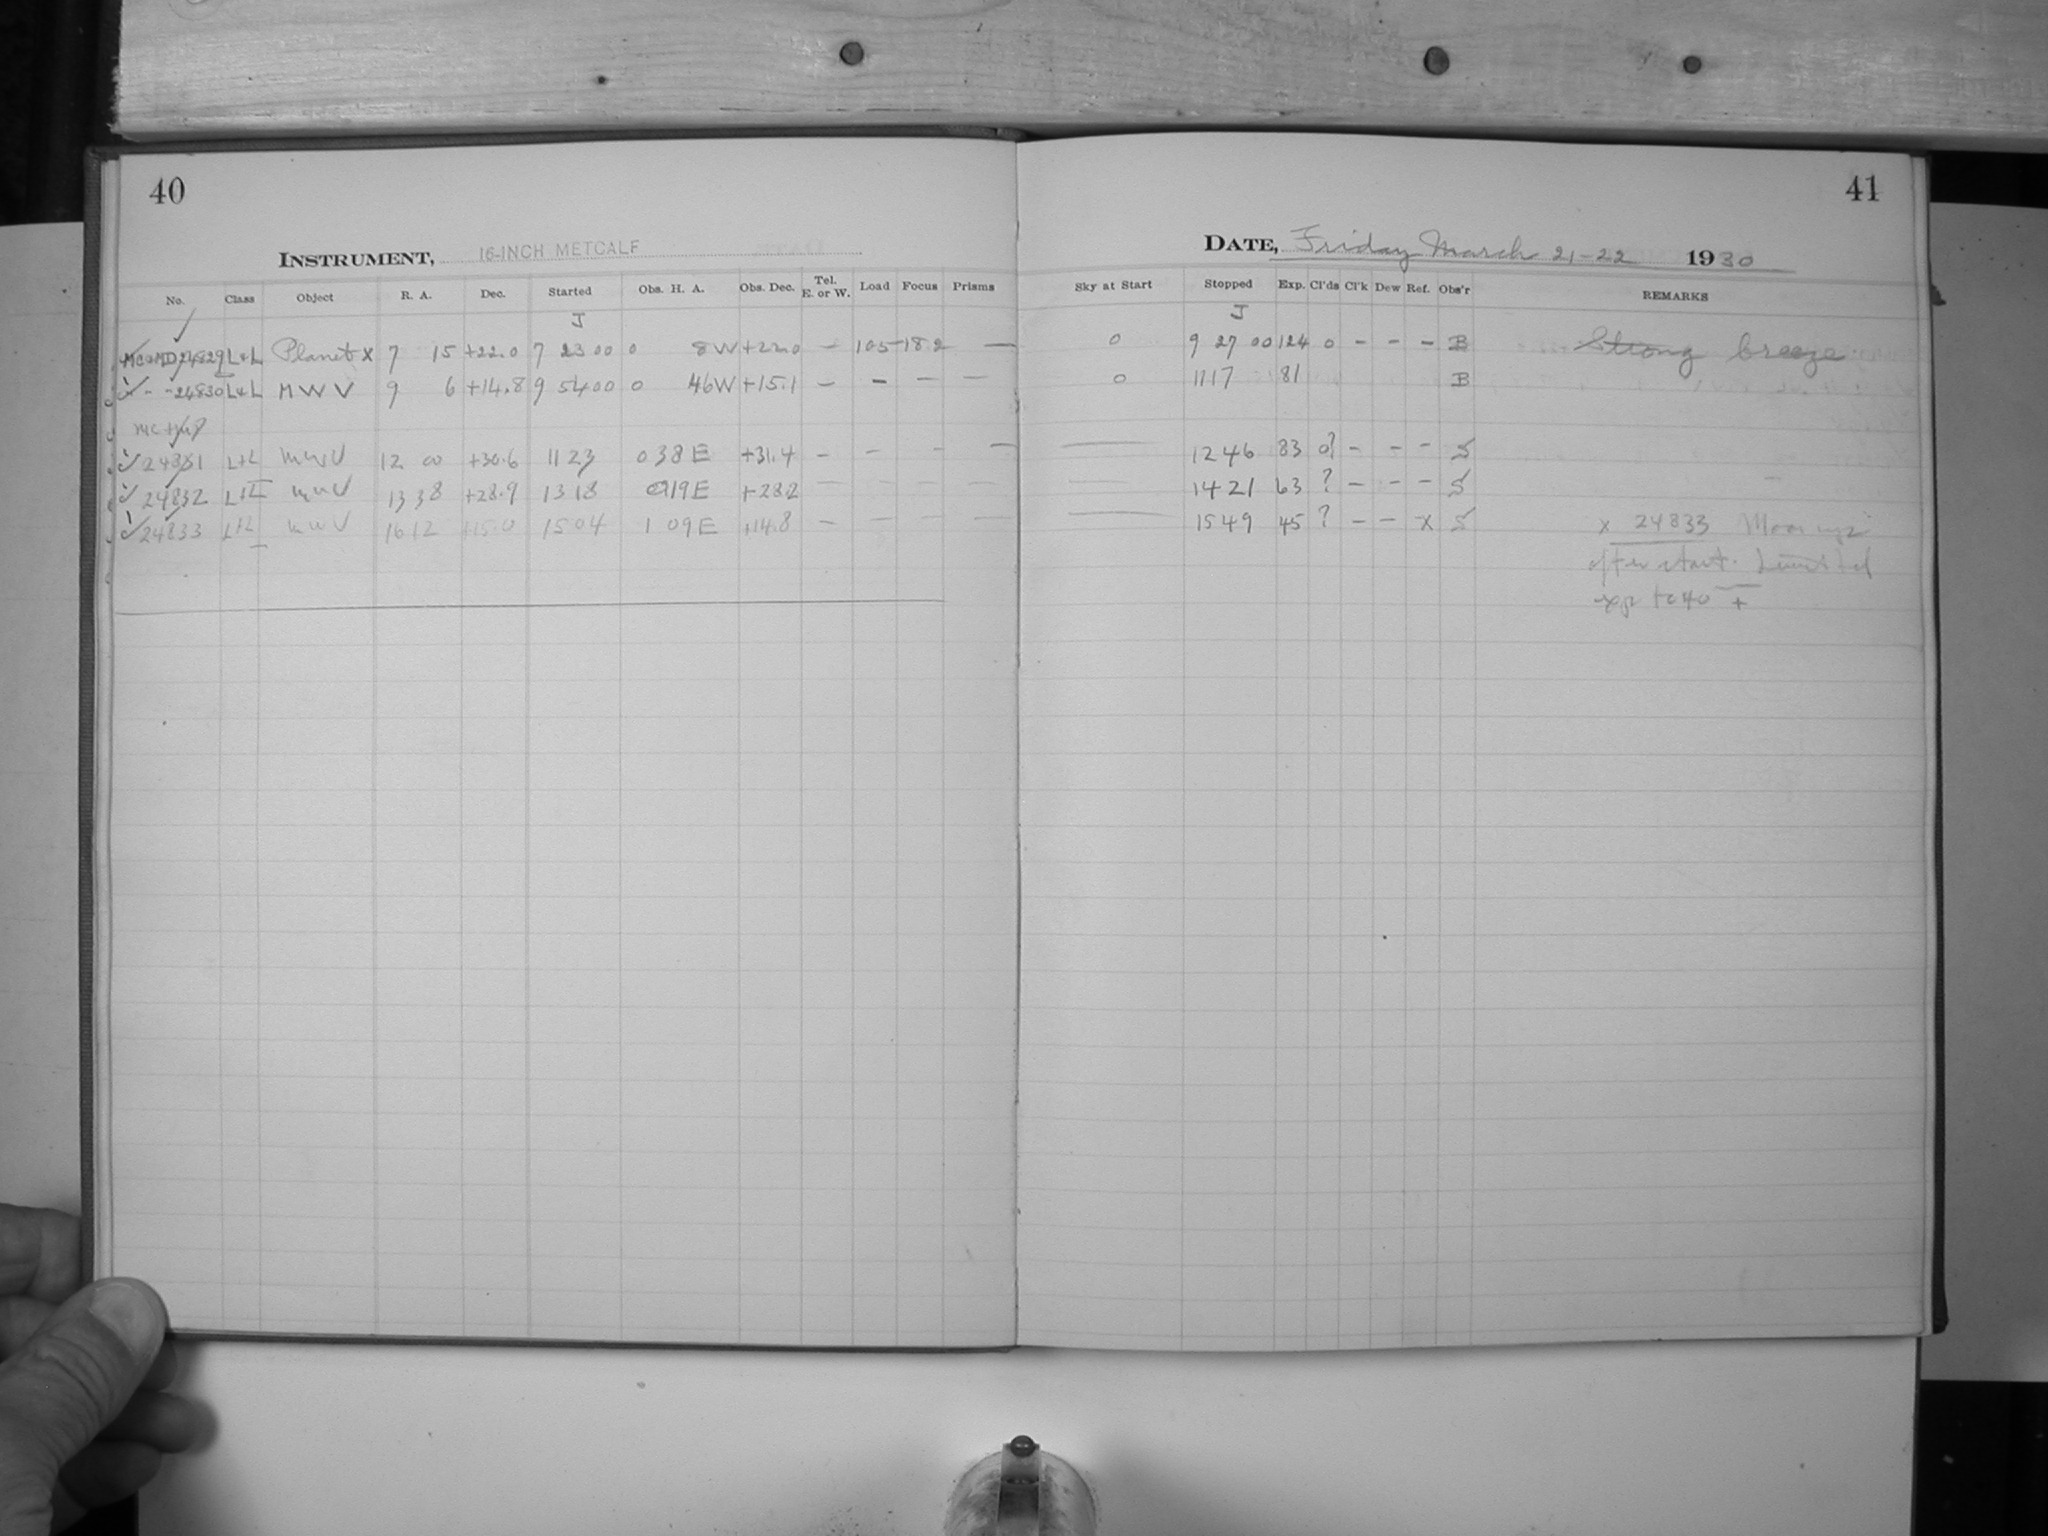 40
INSTRUMENT, 16-INCH METCALF
No. Class Object R. A. Dec. Started Obs. H. A. Obs. Dec. Tel. E. or W. Load Focus Prisms
J
MC+MD 24829 L+L Planet X 7 15 +22.0 7 23 00 0 8W +22.0 — 105 182 —
- - 24830 L+L M W V 9 6 +14.8 9 54 00 0 46W +15.1 — — — —
24831 L+L MWV 12 00 +30.6 11 23 0 38 E +31.4 — — — —
24832 L+L MWV 13 38 +28.9 13 18 0 19 E +28.2 — — — —
24833 L+L MWV 16 12 +15.0 15 04 1 09 E +14.8 — — — —
41
DATE, Friday March 21-22 1930
Sky at Start Stopped Exp. Cl'ds Cl'k Dew Ref. Obs'r REMARKS
J
0 9 27 00 124 0 — — — B Strong breeze
0 11 17 81 B
12 46 83 0? — — — S
14 21 63 ? — — — S
15 49 45 ? — — X S x 24833 Moon up
after start. Limited
exp to 40 +